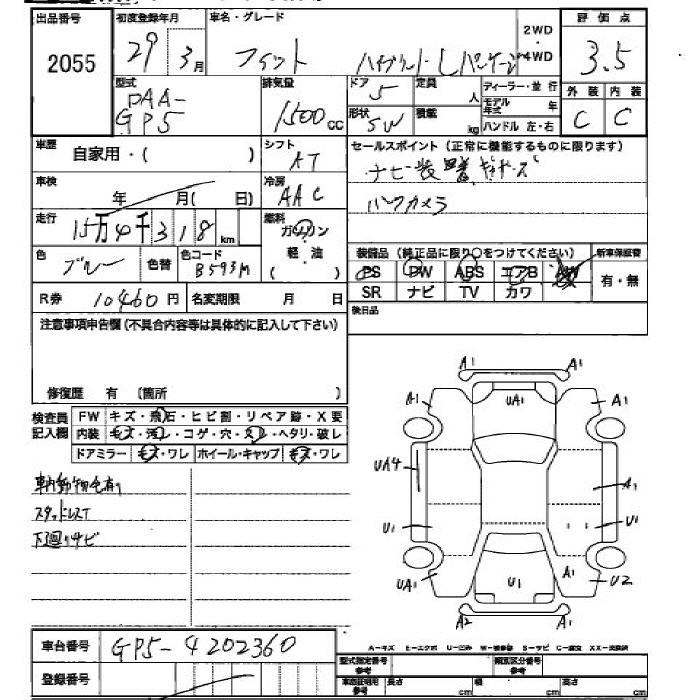 出品番号 初度登録年月 車名・グレード 2WD 評価点
2055 29年3月 フィット ハイブリッド・Lパッケージ 4WD 3.5
型式 排気量 ドア 定員 ディーラー・並行 外装 内装
DAA-GP5 1500cc 5 人 モデル年式 年 C C
形状 積載
5W kg ハンドル 左・右
車歴 自家用・( ) シフト AT セールスポイント (正常に機能するものに限ります)
車検 年 月( 日) 冷房 AAC ナビ装着
バックカメラ
走行 15万4千318km 燃料 ガソリン
軽・油
装備品 (純正品に限り○をつけてください) 新車保証書
色 ブルー 色替 色コード B593M
PS PW ABS エアB AW 有・無
SR ナビ TV カワ
R券 10460円 名変期限 月 日
後日品
注意事項申告欄(不具合内容等は具体的に記入して下さい)
修復歴 有 (箇所 )
検査員記入欄 FW キズ・飛石・ヒビ割・リペア跡・X要
内装 キズ・汚レ・コゲ・穴・スレ・ヘタリ・破レ
ドアミラー キズ・ワレ ホイール・キャップ キズ・ワレ
車内動物毛有り
スタッドレスT
下廻りサビ
A1 A1
A1 UA1 A1
UA4 A1
U1 U1
UA1 U1 A1 U2
A2 A1
A-キズ E-エクボ U-凹み W-補修跡 S-サビ C-腐食 XX-交換済
車台番号 GP5-4202360
登録番号
型式指定番号 参考 類別区分番号 参考
車庫証明用 参考 長さ cm 幅 cm 高さ cm